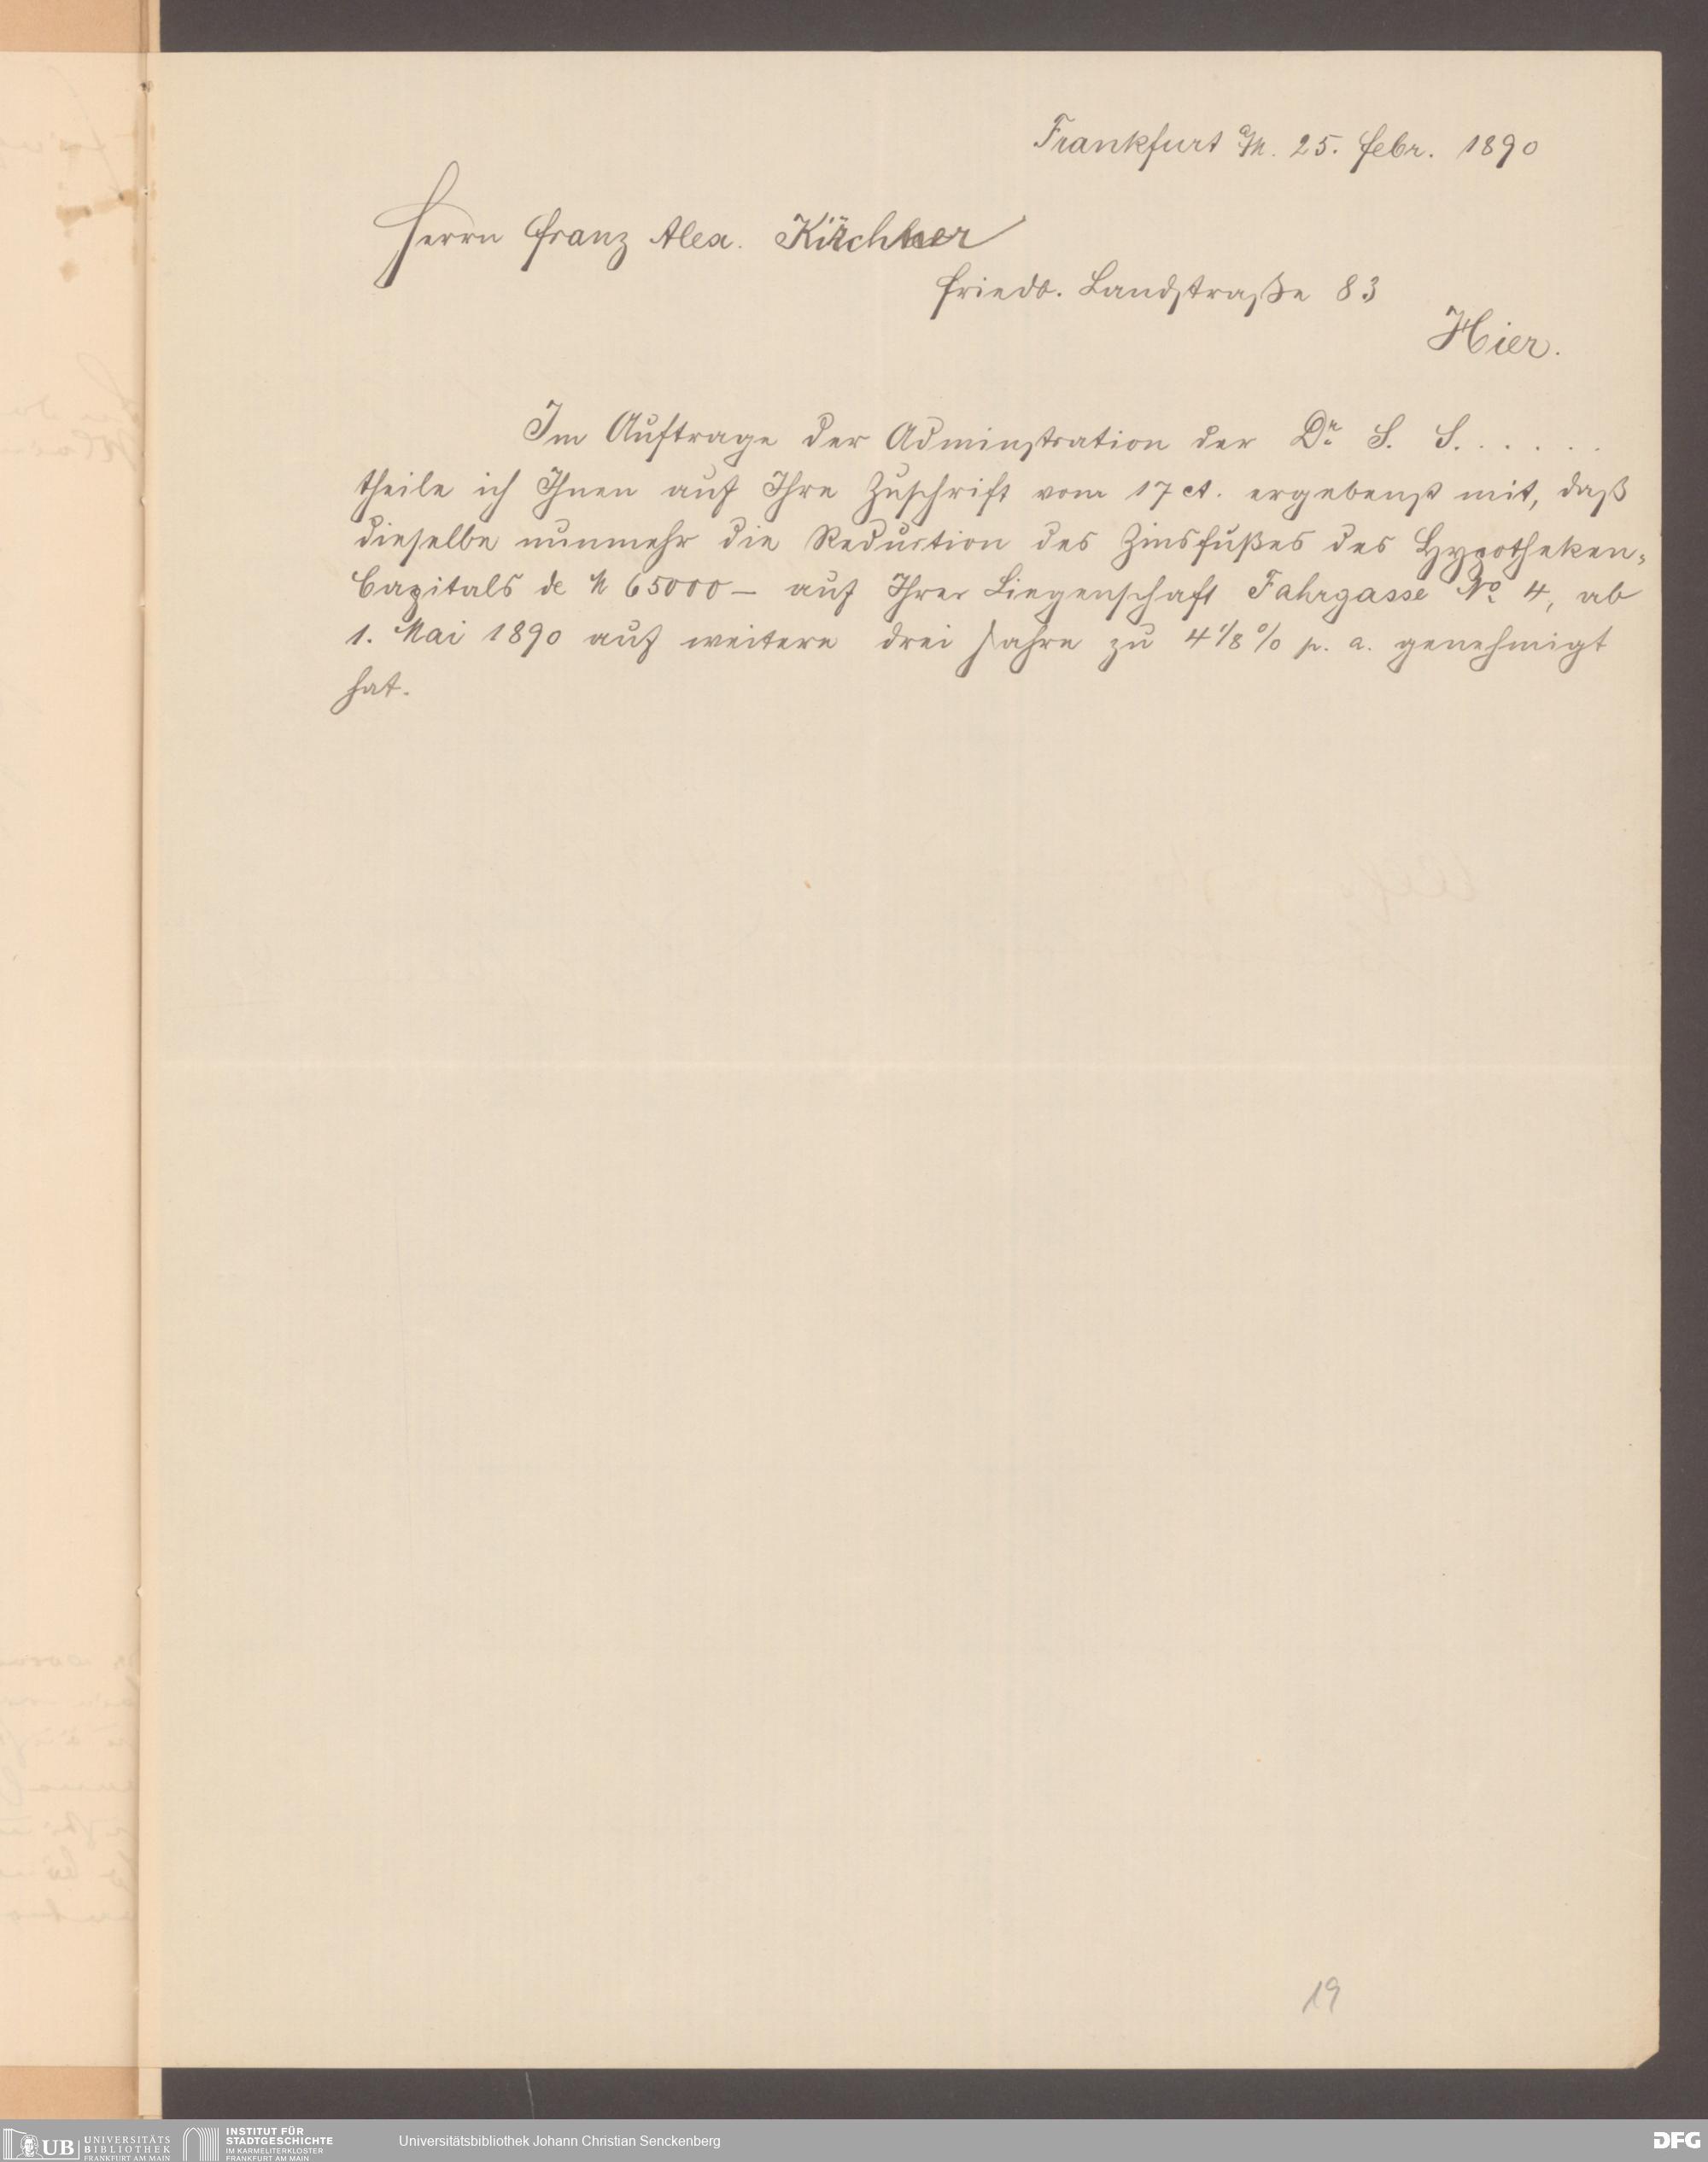 Frankfurt a/M. 25. Febr. 1890
Herrn Franz Alex. Kirchner
Friedb. Landstraße 83
Hier.
Im Auftrage der Adminstration der Dr. S. S. . . . . .
theile ich Ihnen auf Ihre Zuschrift vom 17 ct. ergebenst mit, daß
dieselbe nunmehr die Reduction des Zinsfußes des Hypotheken-
Capitals de M 65000 — auf Ihrer Liegenschaft Fahrgasse No. 4, ab
1. Mai 1890 auf weitere drei Jahre zu 4 1/8 % p. a. genehmigt
hat.
19
UB UNIVERSITÄTS
BIBLIOTHEK
FRANKFURT AM MAIN
INSTITUT FÜR
STADTGESCHICHTE
IM KARMELITERKLOSTER
FRANKFURT AM MAIN
Universitätsbibliothek Johann Christian Senckenberg
DFG